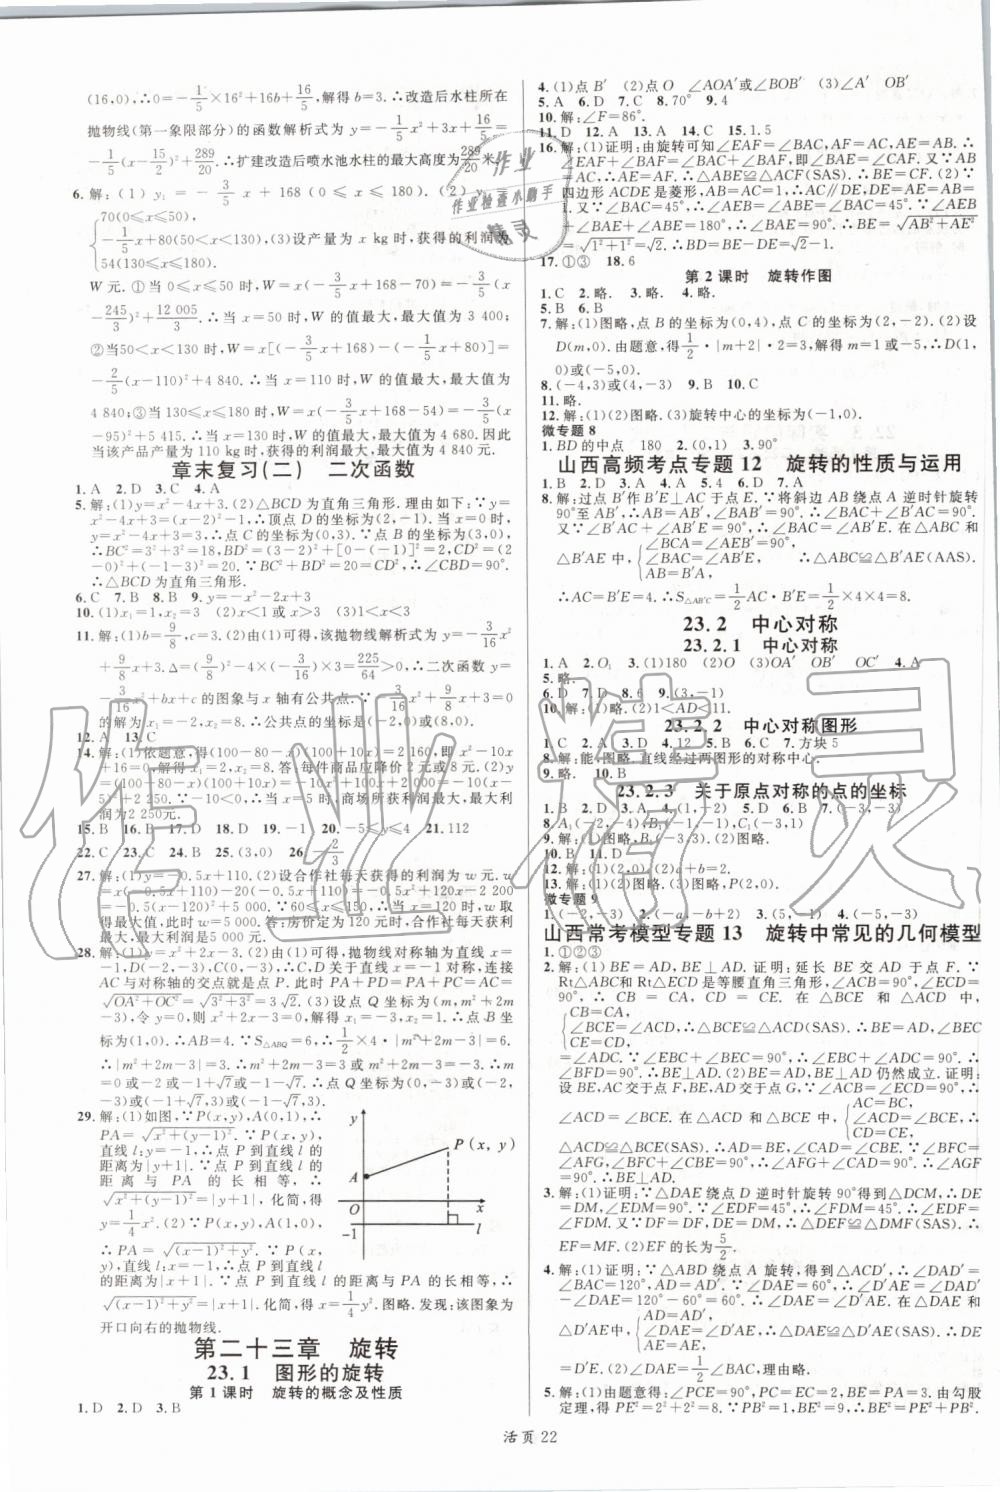 (16,0),∴0=-1/5×16²+16b+16/5,解得b=3.∴改造后水柱所在
抛物线(第一象限部分)的函数解析式为y=-1/5x²+3x+16/5=
-1/5(x-15/2)²+289/20.∴扩建改造后喷水池水柱的最大高度为289/20米.
6.解:(1)y₁=-3/5x+168(0≤x≤180).(2)y₂=
{70(0≤x≤50),
-1/5x+80(50<x<130),(3)设产量为x kg时,获得的利润为
54(130≤x≤180).
W元.①当0≤x≤50时,W=x(-3/5x+168-70)=-3/5(x-
245/3)²+12 005/3.∴当x=50时,W的值最大,最大值为3 400;
②当50<x<130时,W=x[(-3/5x+168)-(-1/5x+80)]=
-2/5(x-110)²+4 840.∴当x=110时,W的值最大,最大值为
4 840;③当130≤x≤180时,W=x(-3/5x+168-54)=-3/5(x
-95)²+5 415.∴当x=130时,W的值最大,最大值为4 680.因此
当该产品产量为110 kg时,获得的利润最大,最大值为4 840元.
章末复习(二) 二次函数
1.A 2.D 3.C 4.A
5.解:(1)y=x²-4x+3.(2)△BCD为直角三角形.理由如下:∵y=
x²-4x+3=(x-2)²-1,∴顶点D的坐标为(2,-1).当x=0时,
y=x²-4x+3=3,∴点C的坐标为(0,3).∵点B的坐标为(3,0),
∴BC²=3²+3²=18,BD²=(3-2)²+[0-(-1)]²=2,CD²=
(2-0)²+(-1-3)²=20.∵BC²+BD²=20=CD²,∴∠CBD=90°.
∴△BCD为直角三角形.
6.C 7.B 8.B 9.y=-x²-2x+3
10.(1)x₁=1,x₂=3 (2)x<1或x>3 (3)1<x<3
11.解:(1)b=9/8,c=3.(2)由(1)可得,该抛物线解析式为y=-3/16x²
+9/8x+3.Δ=(9/8)²-4×(-3/16)×3=225/64>0,∴二次函数y=
-3/16x²+bx+c的图象与x轴有公共点.∵-3/16x²+9/8x+3=0
的解为x₁=-2,x₂=8.∴公共点的坐标是(-2,0)或(8,0).
12.A 13.A
14.解:(1)依题意,得(100-80-x)(100+10x)=2 160,即x²-10x
+16=0.解得x₁=2,x₂=8.答:每件商品应降价2元或8元.(2)y=
(100-80-x)(100+10x)=-10x²+100x+2 000=-10(x-
5)²+2 250.∴当x=5时,商场所获利润最大,最大利
润为2 250元.
15.B 16.B 17.D 18.D 19.-1 20.-5≤y≤4 21.112
22.C 23.C 24.B 25.(3,0) 26.-2/3
27.解:(1)y=-0.5x+110.(2)设合作社每天获得的利润为w元.w=
x(-0.5x+110)-20(-0.5x+110)=-0.5x²+120x-2 200=
-0.5(x-120)²+5 000.∴当x=120时,w取
得最大值,此时w=5 000.答:房价定为120元时,合作社每天获利
最大,最大利润是5 000元.
28.解:(1)y=x²+2x-3.(2)由题可得,抛物线对称轴为直线x=
-1,A(-3,0),C(0,-3).∵点B,A关于直线x=-1对称,连接
AC与对称轴的交点就是点P.此时PA+PD=PA+PC=AC=
√OA²+OC²=√3²+3²=3√2.(3)设点Q坐标为(m,m²+2m-
3),令x²+2x-3=0,解得x₁=-3或x₂=1.∴点B
坐标为(1,0).∴AB=4.∵S△ABQ=6.∴1/2×4·|m²+2m-3|=6.
∴|m²+2m-3|=3.∴m²+2m-3=3或m²+2m-3=-3.∴m=
0或-2或-1+√7或-1-√7.∴点Q坐标为(0,-3)或(-2,-
3)或(-1+√7,3)或(-1-√7,3).
29.解:(1)如图,∵P(x,y),A(0,1),∴
PA=√x²+(y-1)².∵P(x,y),直
线l:y=-1,∴点P到直线l的
距离为|y+1|.∵点P到直线l的
距离与PA的长相等,∴
√x²+(y-1)²=|y+1|,化简,得
y=1/4x².(2)∵P(x,y),A(1,0),
∴PA=√(x-1)²+y².∵P(x,y),
直线l:x=-1,∴点P到直线l
的距离为|x+1|.∵点P到直线l的距离与PA的长相等,∴
√(x-1)²+y²=|x+1|.化简,得x=1/4y².图略.发现:该图象为
开口向右的抛物线.
y P(x,y)
A
O x
-1 l
第二十三章 旋转
23.1 图形的旋转
第1课时 旋转的概念及性质
1.D 2.D 3.B
4.(1)点B′ (2)点O ∠AOA′或∠BOB′ (3)∠A′ OB′
5.A 6.D 7.C 8.70° 9.4
10.解:∠F=86°.
11.D 12.A 13.A 14.C 15.1.5
16.解:(1)证明:由旋转可知∠EAF=∠BAC,AF=AC,AE=AB.∴
∠EAF+∠BAF=∠BAC+∠BAF,即∠BAE=∠CAF.又∵AB=
AC,∴AE=AF.∴△ABE≌△ACF(SAS).∴BE=CF.(2)∵
四边形ACDE是菱形,AB=AC=1,∴AC∥DE,DE=AE=AB=
1.又∵∠BAC=45°,∴∠AEB=∠ABE=∠BAC=45°.∵∠AEB
+∠BAE+∠ABE=180°,∴∠BAE=90°.∴BE=√AB²+AE²
=√1²+1²=√2.∴BD=BE-DE=√2-1.
17.①③ 18.6
第2课时 旋转作图
1.C 2.略. 3.略. 4.略.
5.B 6.B
7.解:(1)图略,点B的坐标为(0,4),点C的坐标为(2,-2).(2)设
D(m,0).由题意,得1/2·|m+2|·2=3,解得m=1或-5.∴D(1,
0)或(-5,0).
8.(-4,3)或(4,-3) 9.B 10.C
11.略.
12.解:(1)(2)图略.(3)旋转中心的坐标为(-1,0).
微专题8
1.BD的中点 180 2.(0,1) 3.90°
山西高频考点专题12 旋转的性质与运用
1.B 2.C 3.A 4.C 5.B 6.D 7.A
8.解:过点B′作B′E⊥AC于点E.∵将斜边AB绕点A逆时针旋转
90°至AB′,∴AB=AB′,∠BAB′=90°.∴∠B′AC+∠BAC=90°.
又∵∠B′AC+∠AB′E=90°,∴∠BAC=∠AB′E.在△ABC和
△B′AE中,{∠BCA=∠AEB′=90°,
∠BAC=∠AB′E, ∴△ABC≌△B′AE(AAS).
AB=B′A,
∴AC=B′E=4.∴S△AB′C=1/2AC·B′E=1/2×4×4=8.
23.2 中心对称
23.2.1 中心对称
1.A 2.O₁ 3.(1)180 (2)O (3)OA′ OB′ OC′ 4.A
5.略.
6.D 7.D 8.6 9.(3,-1)
10.解:(1)图略.(2)1<AD<11.
23.2.2 中心对称图形
1.C 2.A 3.D 4.12 5.B 6.C 7.方块5
8.解:能,图略.直线经过两图形的对称中心.
9.略. 10.B
23.2.3 关于原点对称的点的坐标
1.B 2.D 3.A 4.(1,-2) 5.B 6.2 7.(-3,-3)
8.A₁(-2,-4),B₁(-4,-2),C₁(-3,1)
9.解:(1)图略,B₁(-3,3).(2)图略.
10.B 11.D
12.解:(1)(2,0).(2)a+b=2.
13.解:(1)(2)图略,P(2,0).
微专题9
1.(-2,-3) 2.(-a,-b+2) 3.(5,-1) 4.(-5,-3)
山西常考模型专题13 旋转中常见的几何模型
1.①②③
2.解:(1)BE=AD,BE⊥AD.证明:延长BE交AD于点F.∵
Rt△ABC和Rt△DEC是等腰直角三角形,∠ACB=∠DCE=
90°,∴CB=CA,CD=CE.在△BCE和△ACD中,
{CB=CA,
∠BCE=∠ACD,∴△BCE≌△ACD(SAS).∴BE=AD,∠BEC
CE=CD,
=∠ADC.∵∠EBC+∠BEC=90°,∴∠EBC+∠ADC=90°.
∴∠BFD=90°.∴BE⊥AD.(2)BE=AD,BE⊥AD仍然成立.证明:
设BE,AC交于点F,BE,AD交于点G,∵∠ACB=∠ECD=90°,
∴∠ACD=∠BCE.在△ACD和△BCE中,{AC=BC,
∠ACD=∠BCE,∴
CD=CE,
△ACD≌△BCE(SAS).∴AD=BE,∠CAD=∠CBE.∵∠BFC=
∠AFG,∠BFC+∠CBE=90°,∴∠AFG+∠CAD=90°.∴∠AGF
=90°.∴BE⊥AD.
3.解:(1)证明:∵△DAE绕点D逆时针旋转90°得到△DCM,∴DE=
DM,∠EDM=90°.∵∠EDF=45°,∴∠FDM=45°.∴∠EDF=
∠FDM.又∵DF=DF,DE=DM,∴△DEF≌△DMF(SAS).∴
EF=MF.(2)EF的长为5/2.
4.解:(1)证明:∵△ABD绕点A旋转,得到△ACD′,∴∠DAD′=
∠BAC=120°,AD=AD′.∵∠DAE=60°,∴∠EAD′=∠DAD′-
∠DAE=120°-60°=60°.∴∠DAE=∠D′AE.在△DAE和
△D′AE中,{AD=AD′,
∠DAE=∠D′AE,∴△DAE≌△D′AE(SAS).∴DE=
AE=AE,
D′E.(2)∠DAE=1/2∠BAC.理由略.
5.解:(1)由题意得:∠EBP=∠ABC=90°,BE=BP,PA=3.由勾股
定理,得PE²=BE²+BP²=2BP².∵PB²=1,BP²=BE²=1,
活页22